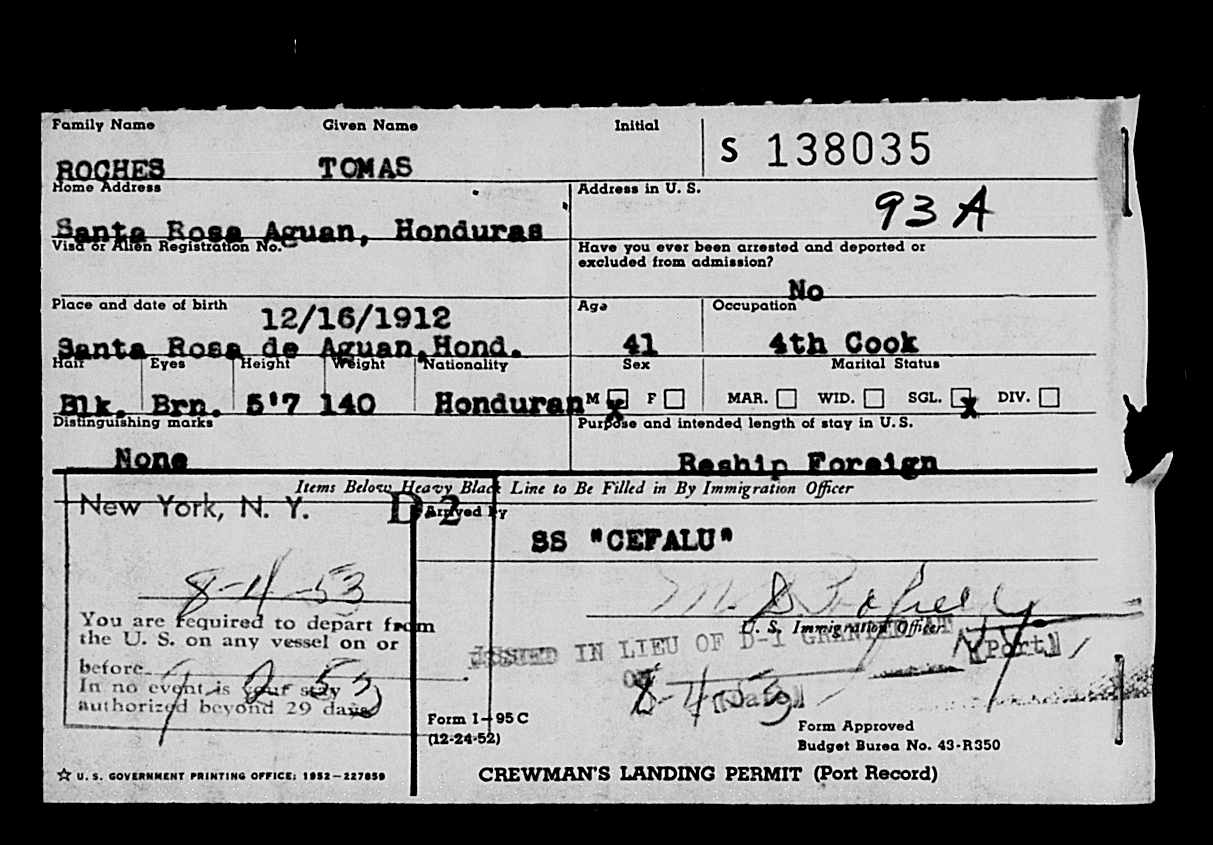 Family Name Given Name Initial
S 138035
ROCHES TOMAS
Home Address Address in U. S.
93 A
Santa Rosa Aguan, Honduras
Visa or Alien Registration No. Have you ever been arrested and deported or
excluded from admission?
No
Place and date of birth Age Occupation
12/16/1912
Santa Rosa de Aguan,Hond. 41 4th Cook
Hair Eyes Height Weight Nationality Sex Marital Status
Blk. Brn. 5'7 140 Honduran M x F MAR. WID. SGL. x DIV.
Distinguishing marks Purpose and intended length of stay in U.S.
None Reship Foreign
Items Below Heavy Black Line to Be Filled in By Immigration Officer
New York, N. Y. D-2 Arrived by
SS "CEFALU"
8-4-53
You are required to depart from
the U. S. on any vessel on or
before
In no event is your stay
authorized beyond 29 days
U. S. Immigration Officer
ISSUED IN LIEU OF D-1 GRANTED AT
NY [Port]
ON 8-4-53 [Date]
Form I-95 C
(12-24-52)
Form Approved
Budget Burea No. 43-R350
☆ U. S. GOVERNMENT PRINTING OFFICE: 1952-227859
CREWMAN'S LANDING PERMIT (Port Record)